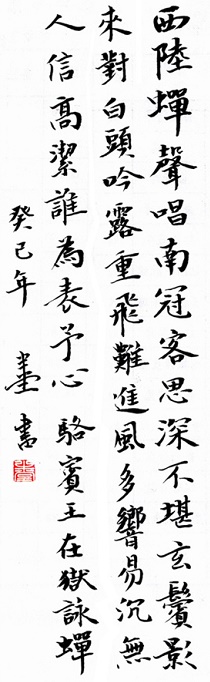 西陸蟬聲唱南冠客思深不堪玄鬢影
來對白頭吟露重飛難進風多響易沉無
人信高潔誰為表予心 駱賓王在獄詠蟬
癸巳年 書